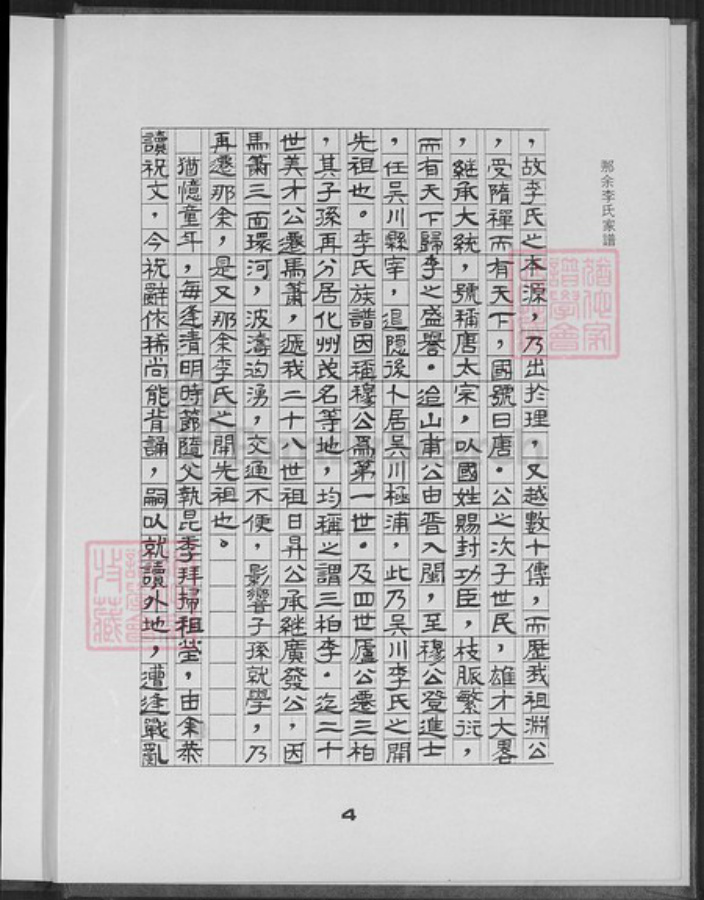 那余李氏家譜
，故李氏之本源，乃出於理，又越數十傳，而歷我祖淵公
，受隋禪而有天下，國號曰唐。公之次子世民，雄才大畧
，繼承大統，號稱唐太宗，以國姓賜封功臣，枝脈繁衍，
而有天下歸李之盛譽。迨山甫公由晋入閩，至穆公登進士
，任吳川縣宰，退隐後卜居吳川極浦，此乃吳川李氏之開
先祖也。李氏族譜因稱穆公爲第一世。及四世廬公遷三柏
，其子孫再分居化州茂名等地，均稱之謂三柏李。迄二十
世美才公遷馬蕭，遞我二十八世祖日昇公承継廣發公，因
馬蕭三面環河，波濤洶湧，交通不便，影響子孫就學，乃
再遷那余，是又那余李氏之開先祖也。
猶憶童年，每逢清明時節隨父執昆季拜掃祖塋，由余恭
讀祝文，今祝辭依稀尚能背誦，嗣以就讀外地，遭逢戰亂
4